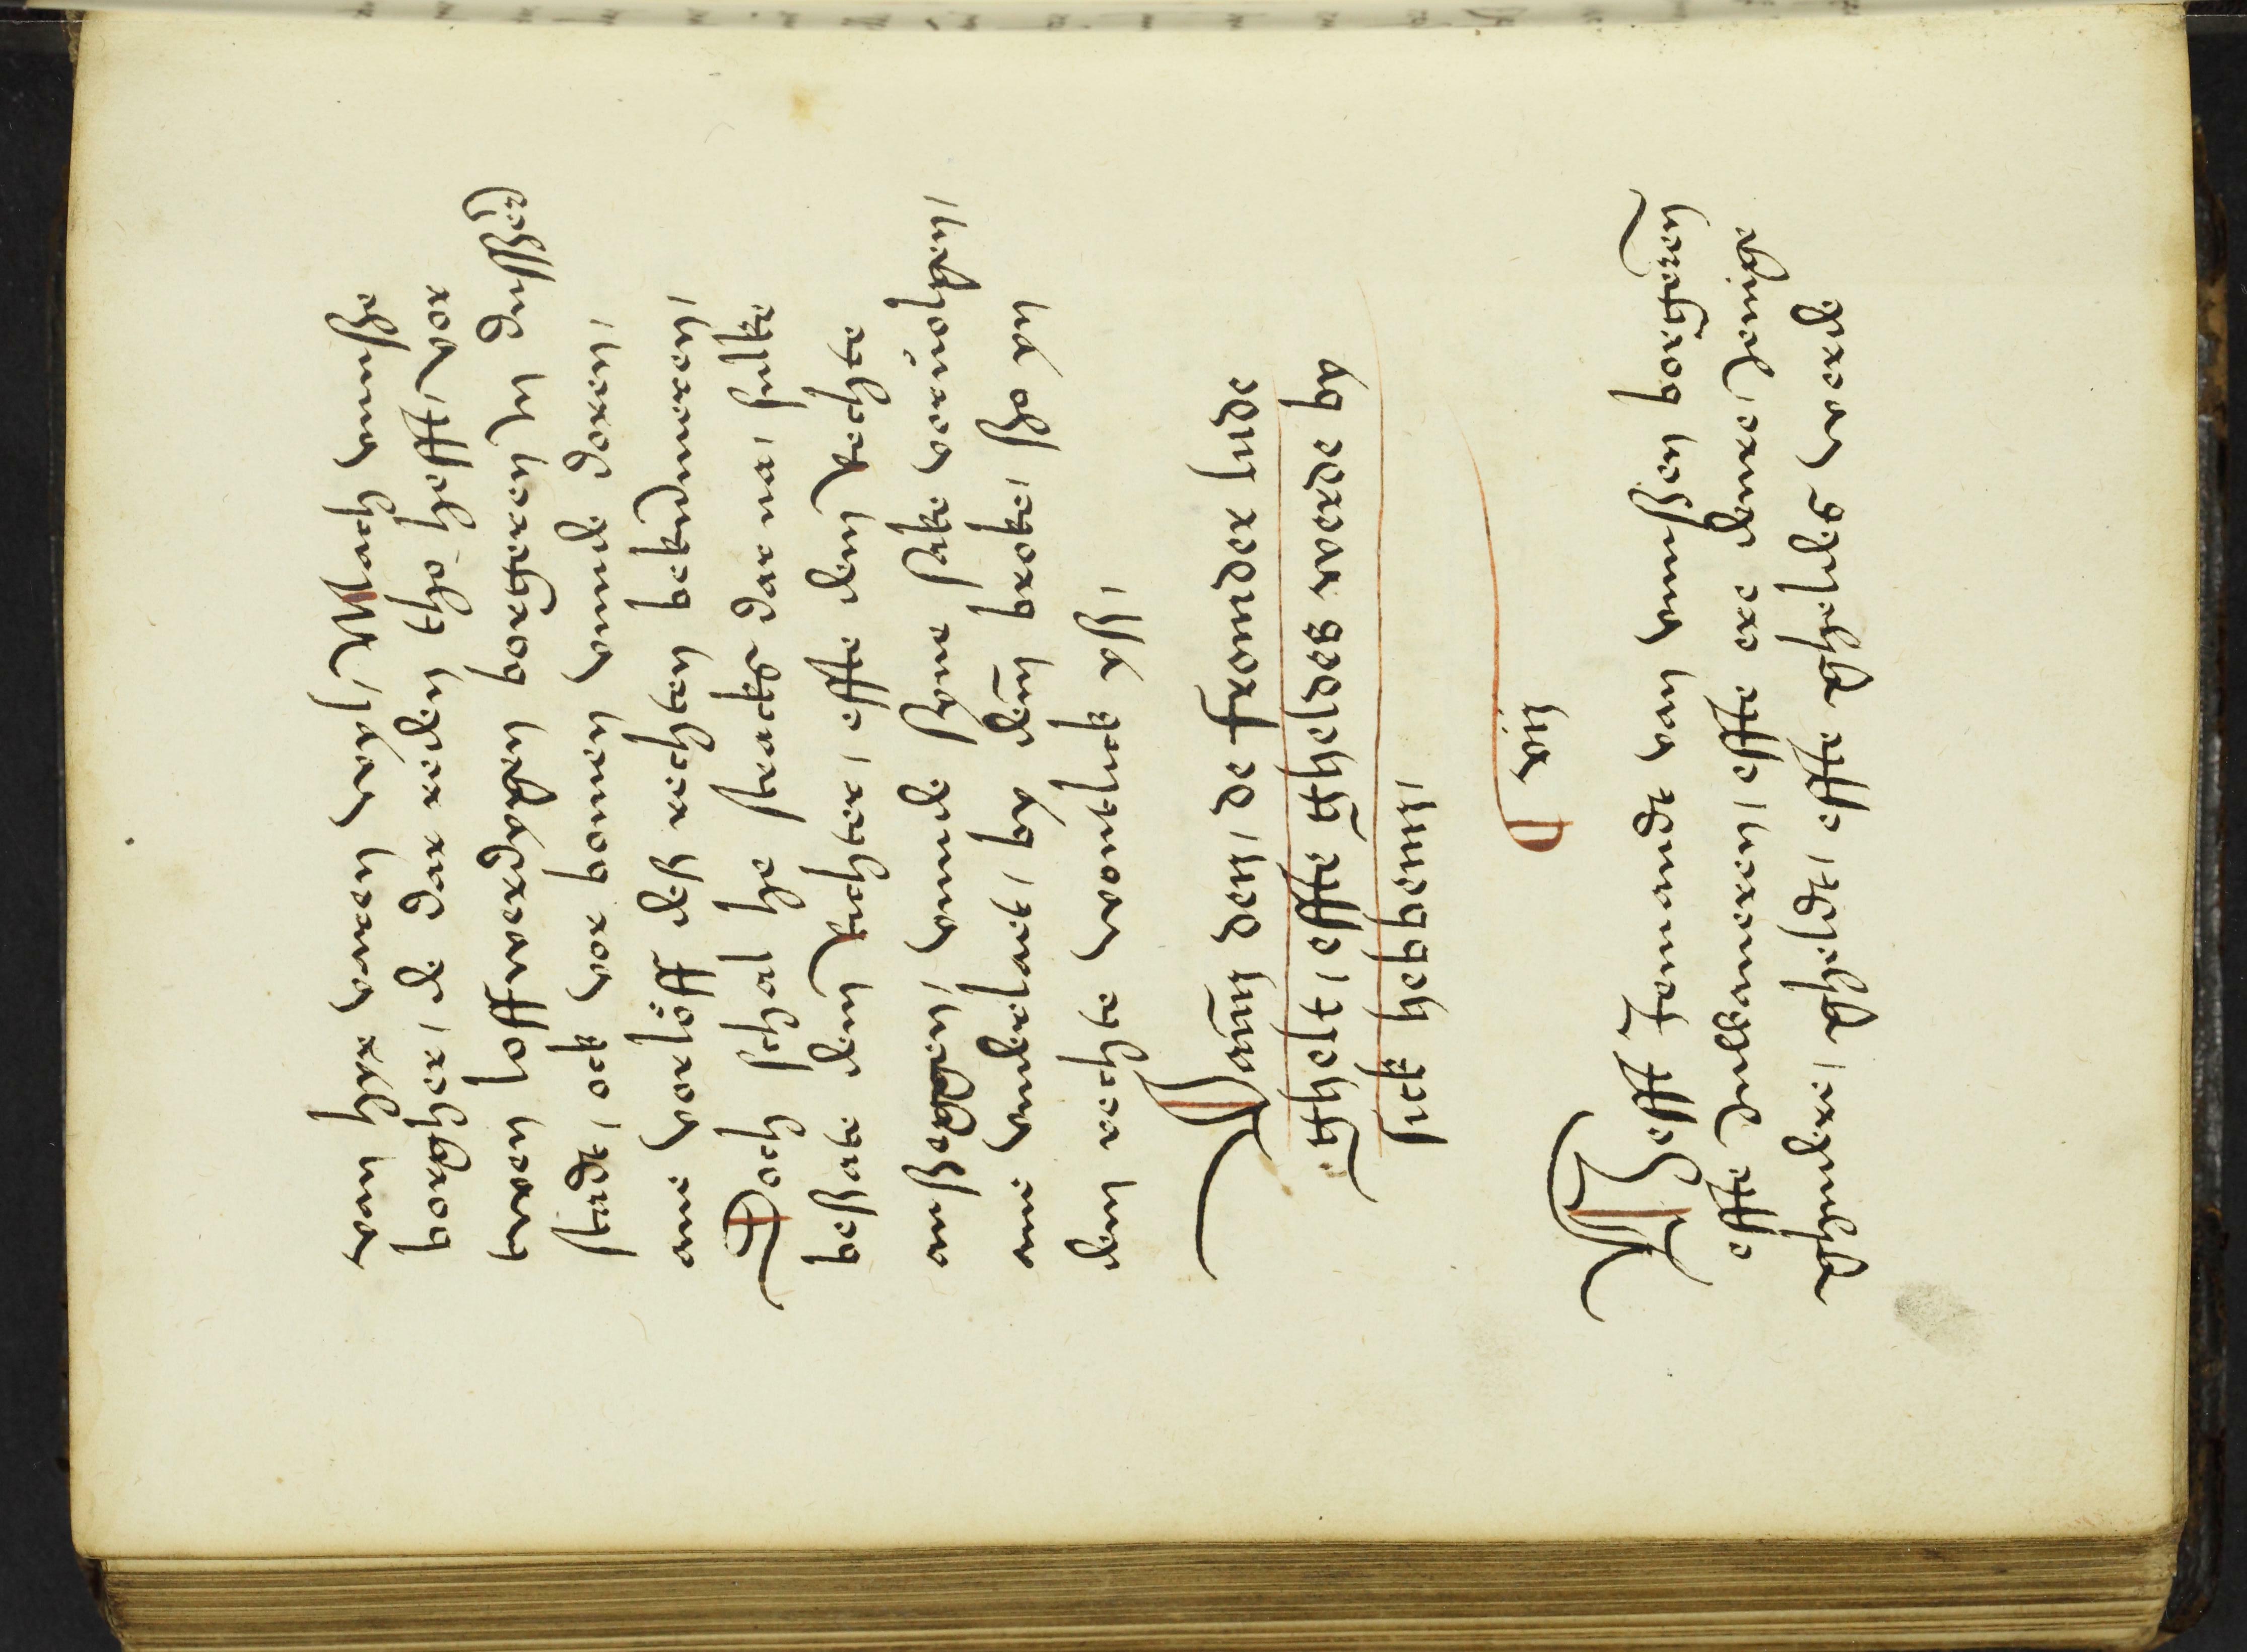 van hyr varen wyl, Mach vnnße
borgher, de dar reden tho hefft, vor
twen loffwerdygen borgeren jn dusßer
stadt, ock vor bomen vnnde doren,
ane vorlöff deß rechten bekummeren,
Doch schal he strackß dar na, sulke
beßate dem Richter, effte dem Rechte
anßeggen, vnnde syne sake veruolgen,
ane vnderlaet, by dem broke, ßo yn
dem rechte wontlick yß,
Vann den, de fromder lude
ghelt, effte gheldes werde by
sick hebbenn,
viij
Hefft Jemandt van vnnßen borgeren
effte Jnwaneren, effte ere denre, Jenige
ghudere, gheldt, effte gheldeß werde